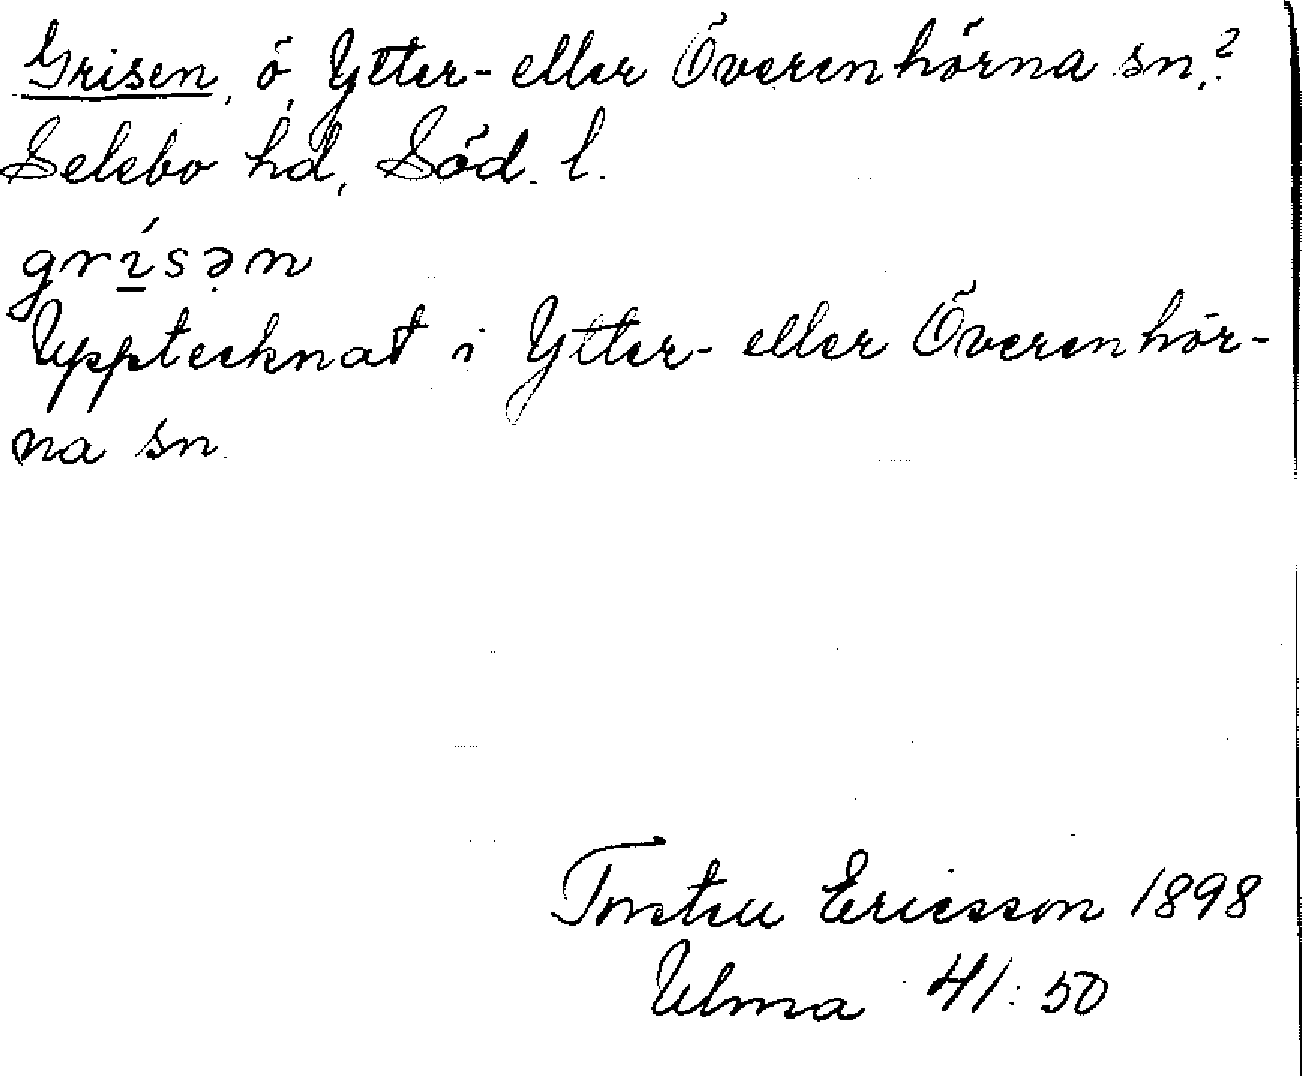 Grisen, ö, Ytter- eller Överenhörna sn.?
Selebo hd, Söd. l.
grísən
Upptecknat i Ytter- eller Överenhör-
na sn.
Torsten Ericsson 1898
Ulma 41:50